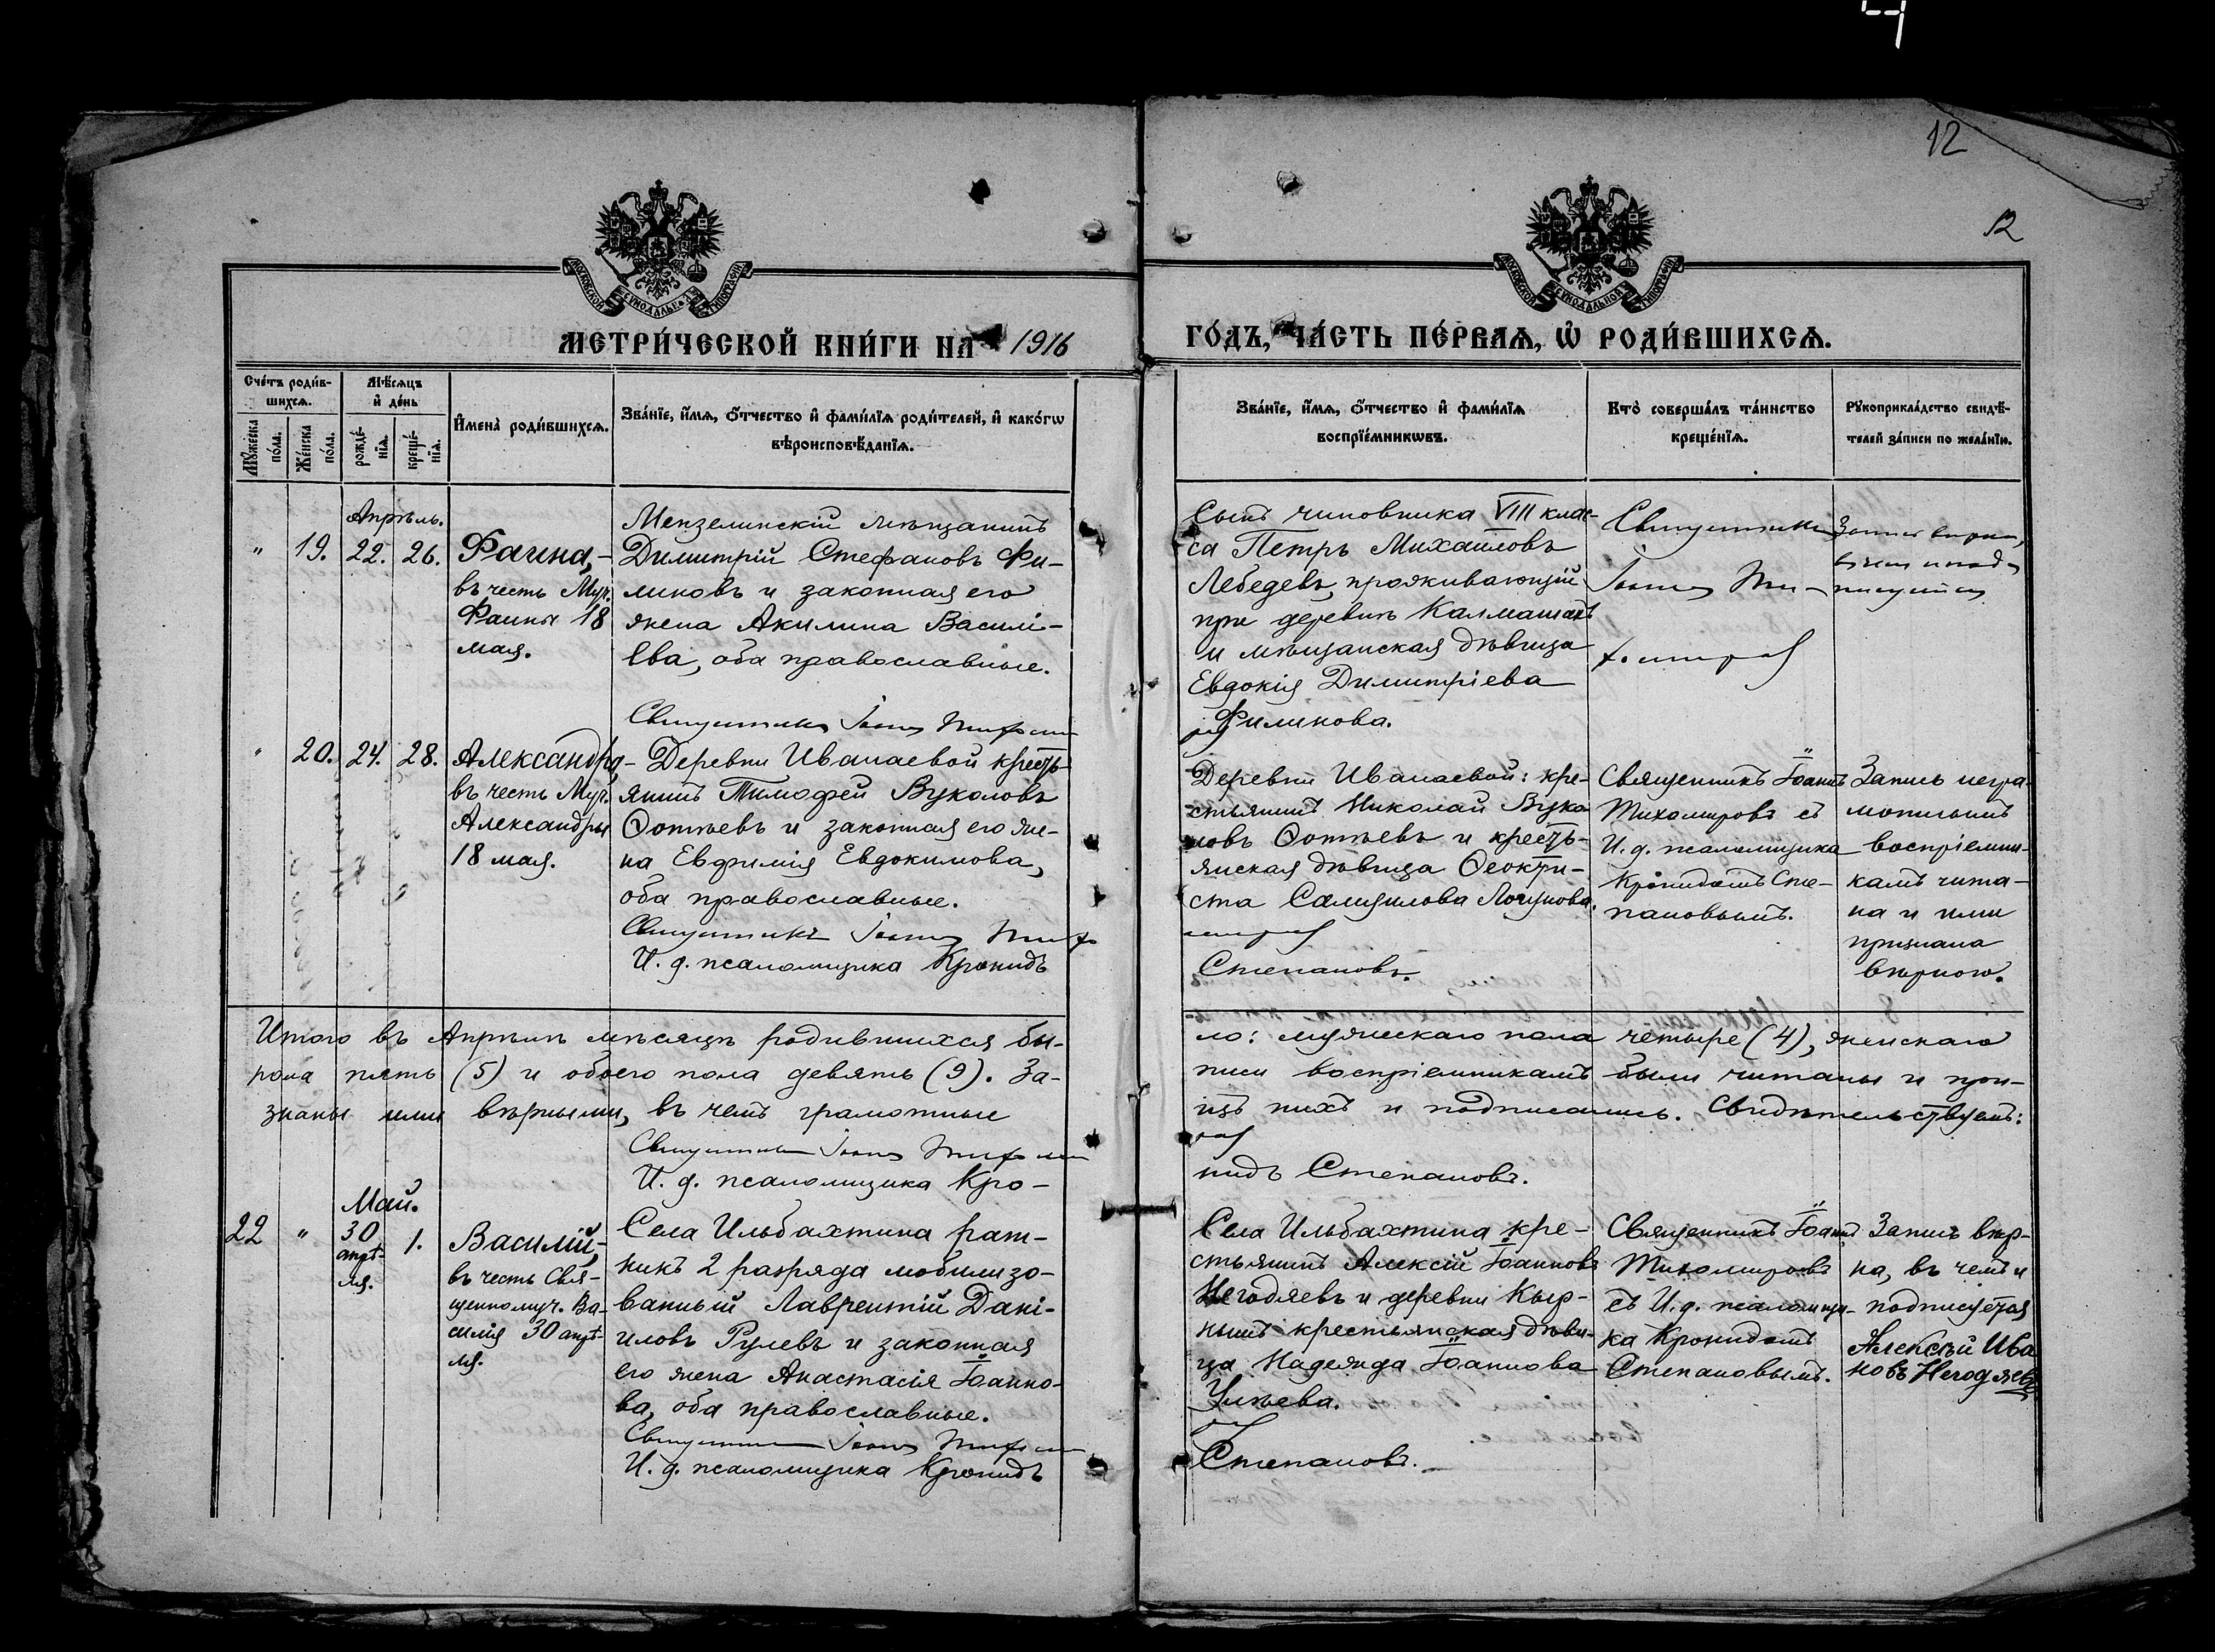 12
12
МОСКОВСКОЙ СѴНОДАЛЬНОЙ ТИПОГРАФІИ
МОСКОВСКОЙ СѴНОДАЛЬНОЙ ТИПОГРАФІИ
МЕТРИ́ЧЕСКОЙ КНИ́ГИ НА 1916
ГО́ДЪ, ЧА́СТЬ ПЕ́РВАѦ, Ѽ РОДИ́ВШИХСѦ.
Сче́тъ роди́в-
шихсѧ.
Мꙋ́жеска по́ла.
Же́нска по́ла.
Мѣ́сѧцъ
и҆ де́нь
рожде́-
нїѧ.
креще́-
нїѧ.
И҆мена̀ роди́вшихсѧ.
Зва́нїе, и҆́мѧ, ѻ҆́тчество и҆ фами́лїѧ роди́телей, и҆ како́гѡ
вѣроисповѣ́данїѧ.
Зва́нїе, и҆́мѧ, ѻ҆́тчество и҆ фами́лїѧ
воспрїе́мникѡвъ.
Кто̀ соверша́лъ та́инство
креще́нїѧ.
Рꙋкоприкла́дство свидѣ́-
телей за́писи по жела́нїю.
Апрѣль.
" 19. 22. 26.
Фаина,-
въ честь Муч.
Фаины 18
мая.
Мензелинскій мѣщанинъ
Димитрій Стефановъ Фи-
линовъ и законная его
жена Акилина Василі-
ева, оба православные.
Священникъ Іоаннъ Тихоми
Сынъ чиновника VIII клас-
са Петръ Михаиловъ
Лебедевъ, проживающій
при деревнѣ Калмашахъ
и мѣщанская дѣвица
Евдокія Димитріева
Филинова.
Священникъ
Іоаннъ Ти-
хомировъ
Запись вѣрна,
" 20. 24. 28.
Александра,-
въ честь Муч.
Александры
18 мая.
Деревни Иванаевой кресть-
янинъ Тимофей Вуколовъ
Ѳотѣевъ и законная его же-
на Евфимія Евдокимова,
оба православные.
Священникъ Іоаннъ Тихо
И. д. псаломщика Кронидъ
Деревни Иванаевой: кре-
стьянинъ Николай Вуко-
ловъ Ѳотѣевъ и кресть-
янская дѣвица Ѳеокти-
ста Самуилова Логунова.
мировъ
Степановъ.
Священникъ Іоаннъ
Тихомировъ съ
И. д. псаломщика
Кронидомъ Сте-
пановымъ.
Запись негра-
мотнымъ
воспріемни-
камъ чита-
на и ими
признана
вѣрною.
Итого въ Апрѣлѣ мѣсяцѣ родившихся бы-
ло: мужескаго пола четыре (4), женскаго
пола пять (5) и обоего пола девять (9). За-
писи воспріемникамъ были читаны и при-
знаны ими вѣрными, въ чемъ грамотные
изъ нихъ и подписались. Свидѣтельствуемъ:
Священникъ Іоаннъ Тихоми
ровъ
И. д. псаломщика Кро-
нидъ Степановъ.
Май.
22 " 30 апрѣ-
ля. 1.
Василій,-
въ честь Свя-
щенномуч. Ва-
силія 30 апрѣ-
ля.
Села Ильбахтина рат-
никъ 2 разряда мобилизо-
ванный Лаврентій Дані-
иловъ Рулевъ и законная
его жена Анастасія Іоанно-
ва, оба православные.
Священникъ Іоаннъ Тихоми
И. д. псаломщика Кронидъ
Села Ильбахтина кре-
стьянинъ Алексій Іоанновъ
Негодяевъ и деревни Кыр-
нышъ крестьянская дѣви-
ца Надежда Іоаннова
Улѣева.
Степановъ.
Священникъ Іоаннъ
Тихомировъ
съ И. д. псаломщи-
ка Кронидомъ
Степановымъ.
Запись вѣр-
на, въ чемъ и
подписуется
Алексѣй Ива
новъ Негодяевъ